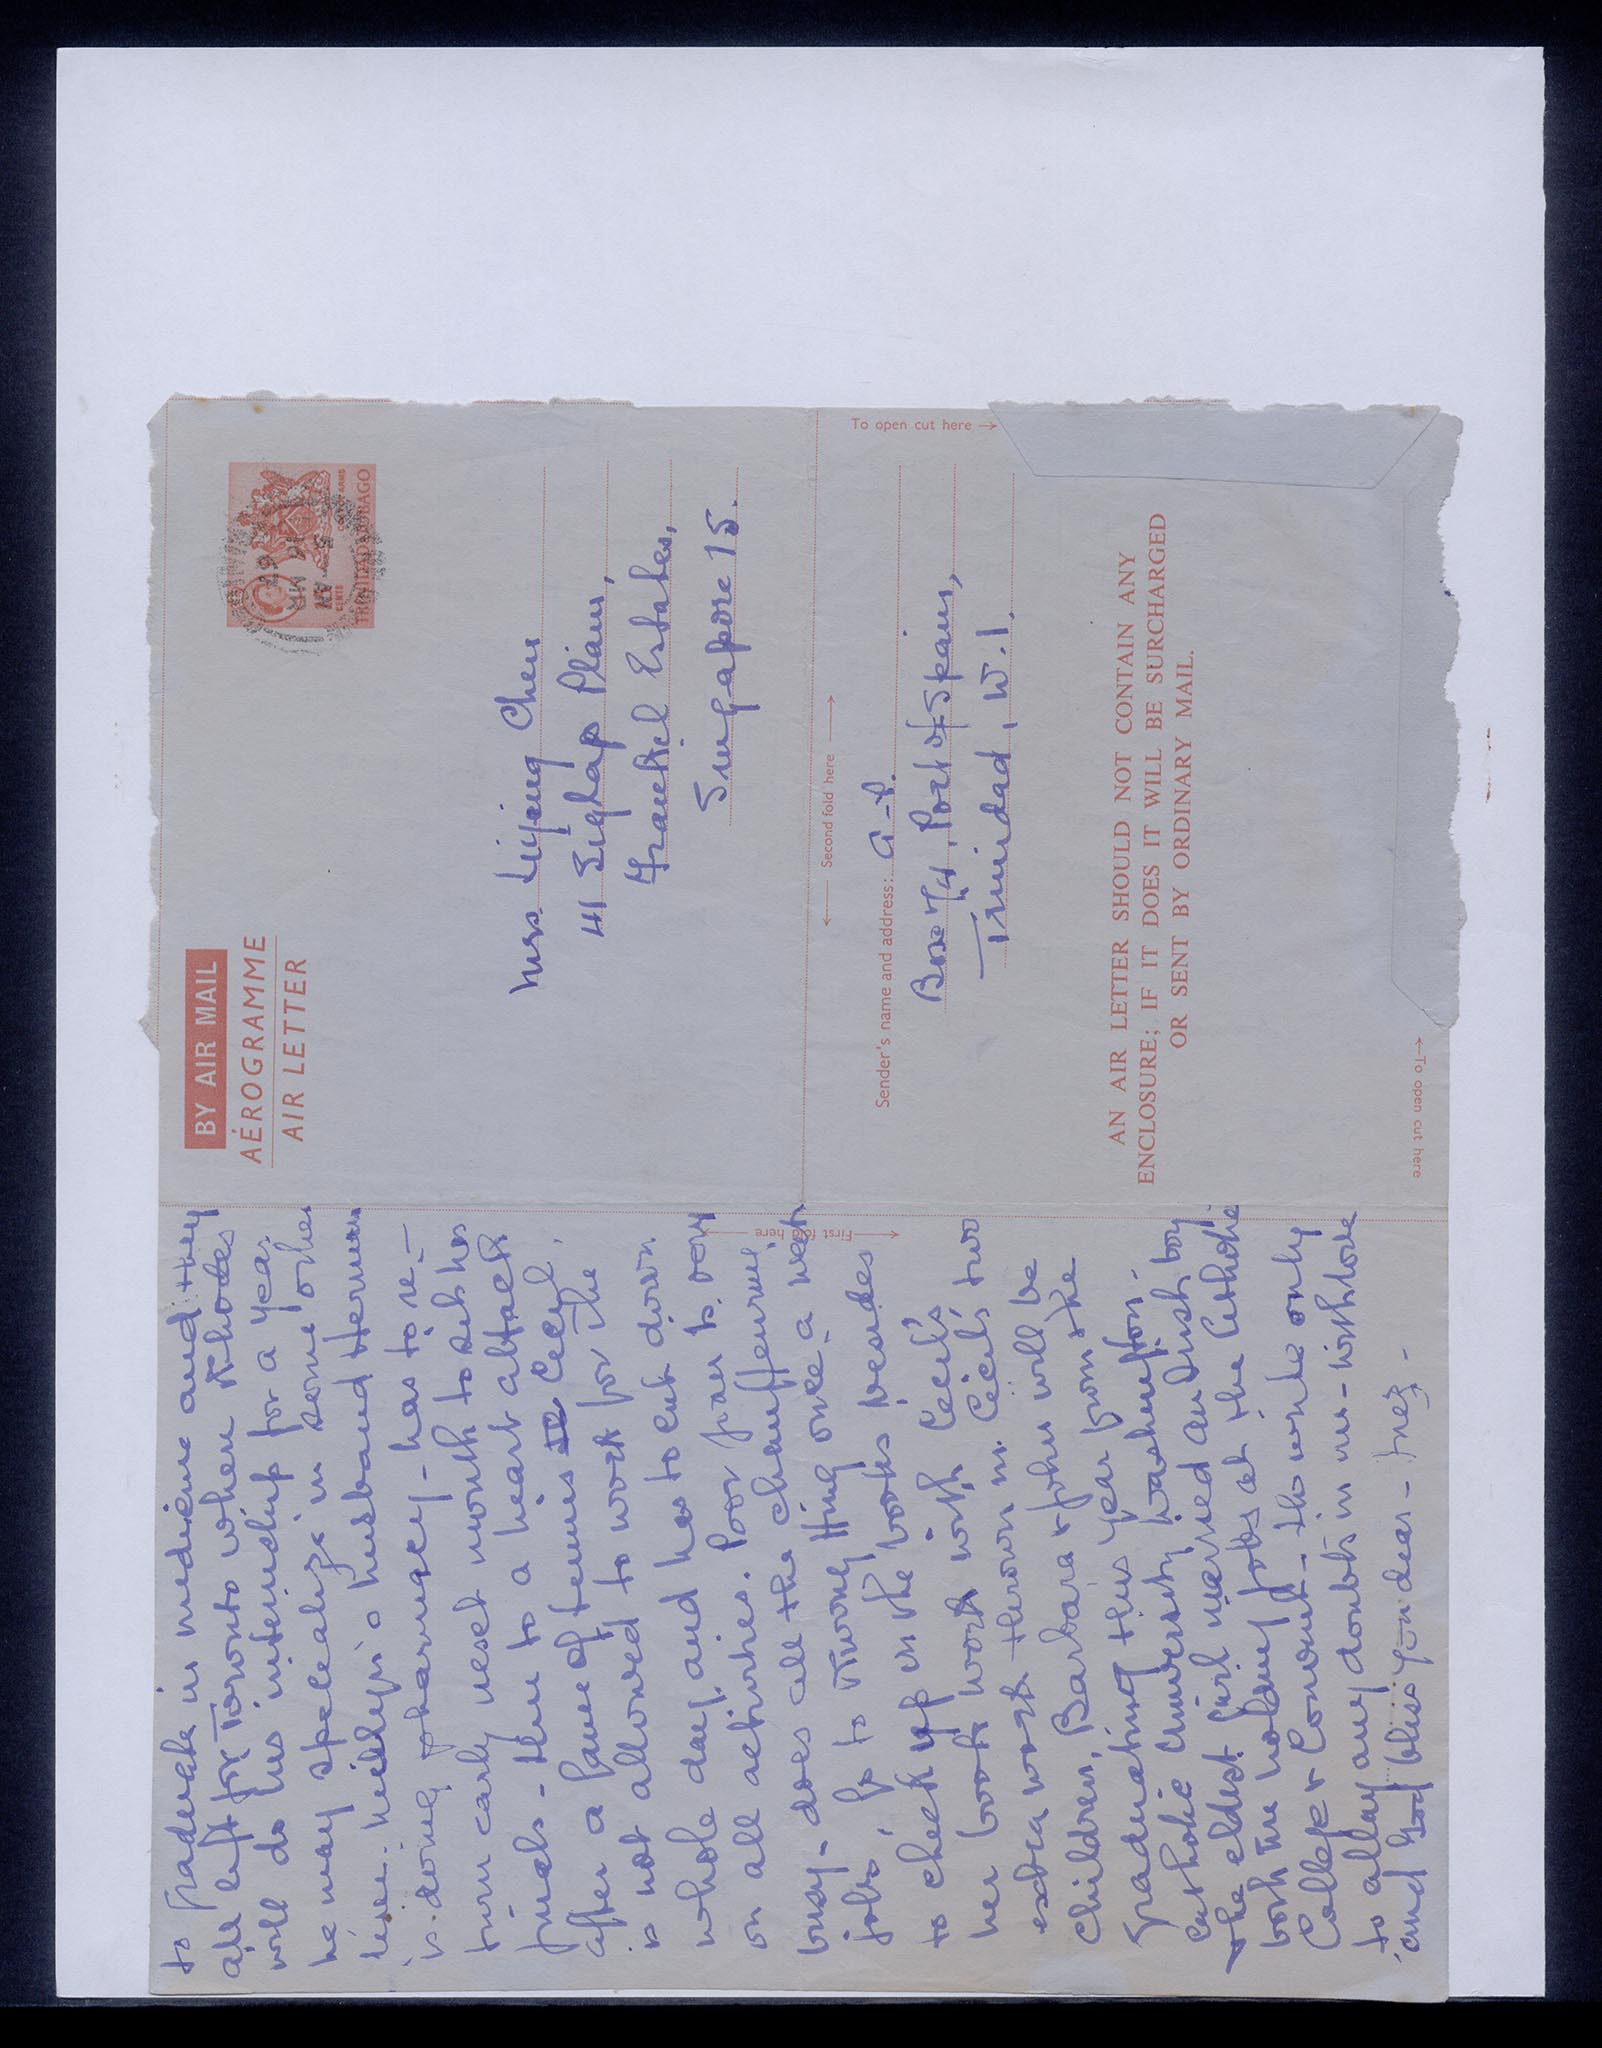 BY AIR MAIL
AÉROGRAMME
AIR LETTER
CENTS
TRINIDAD & TOBAGO
Miss Liying Chen
41 Siglap Plain,
Frankel Estates,
Singapore 15.
To open cut here →
← Second fold here →
Sender's name and address: a-t.
Box 74, Port of Spain,
Trinidad, W.I.
AN AIR LETTER SHOULD NOT CONTAIN ANY
ENCLOSURE; IF IT DOES IT WILL BE SURCHARGED
OR SENT BY ORDINARY MAIL.
→ To open cut here
First fold here
to graduate in medicine and they
all left for Toronto where Rhodes
will do his internship for a year
he may specialize in some other
line. husband Herman
is doing pharmacy - has to re-
turn early next month to set his
- due to a heart attack
after a game of tennis Cecyl.
is not allowed to work for the
whole day and has to cut down
on all activities. Poor Joan is very
busy - does all the chauffeuring
jobs, go to Kwong Hing once a week
to check up on the books besides
her book work with Cecil's
extra work thrown in. Cecil's two
children, Barbara & John will be
graduating this year from the
Catholic University Washington.
The eldest girl married an Irish boy
both are holding jobs at the Catholic
College & Convent - the works only
to allay any doubts in me - with love
and God bless you dear -